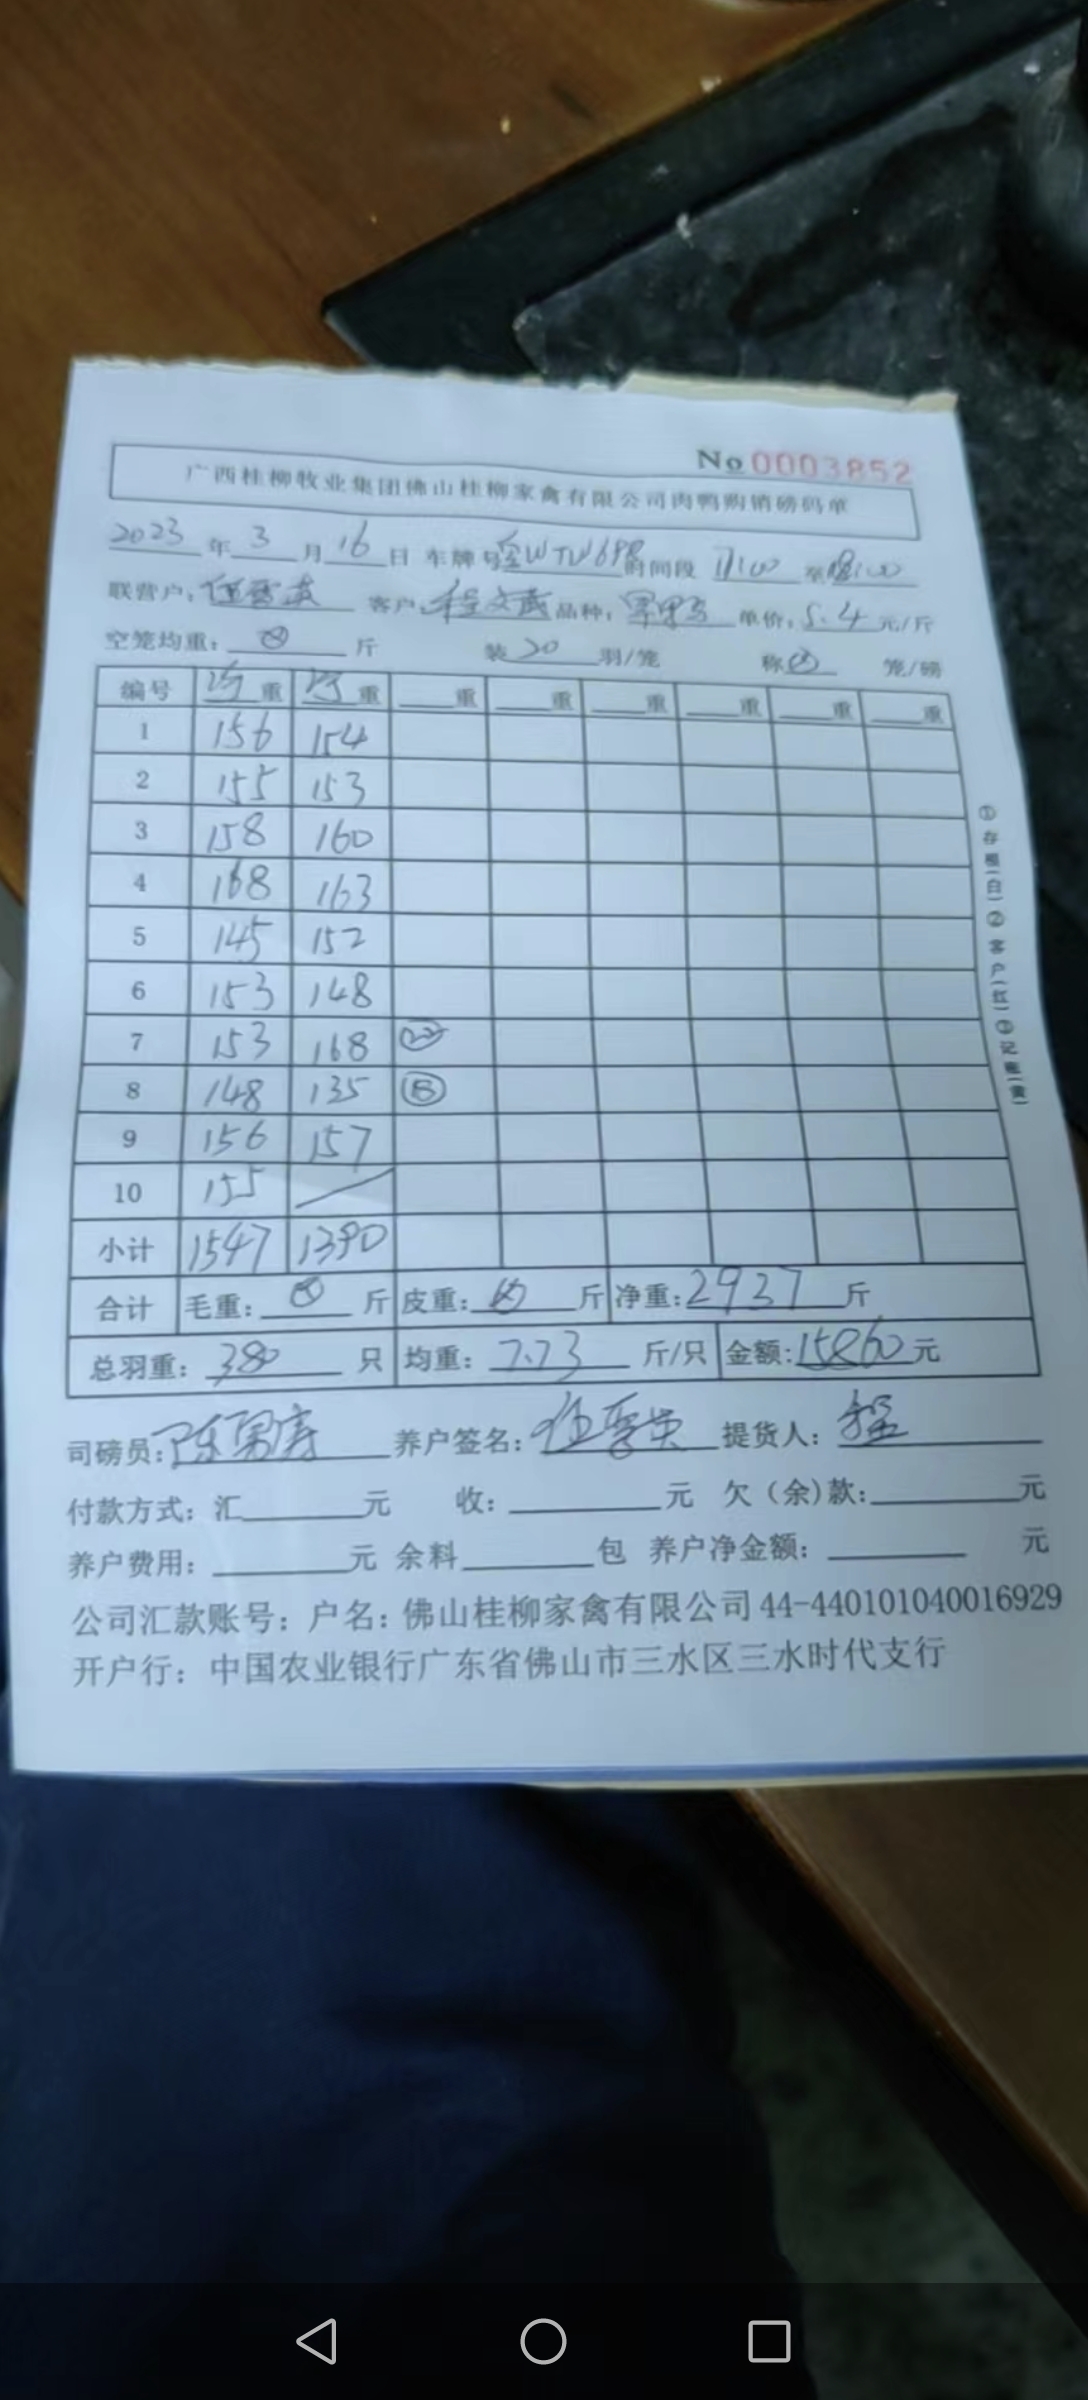 No 0003852
广西桂柳牧业集团佛山桂柳家禽有限公司肉鸭购销磅码单
2023 年 3 月 16 日 车牌号 WTW698 时间段 17:00 至 18:00
联营户: 客户: 程文武 品种: 单价: 5.4 元/斤
空笼均重: 斤 装 20 羽/笼 称 笼/磅
编号 净重 净重 重 重 重 重 重 重
1 156 154
2 155 153
3 158 160
4 168 163
5 145 152
6 153 148
7 153 168
8 148 135
9 156 157
10 155
小计 1547 1390
合计 毛重: 斤 皮重: 斤 净重: 2937 斤
总羽重: 380 只 均重: 7.73 斤/只 金额: 15860 元
司磅员: 养户签名: 提货人:
付款方式: 汇 元 收: 元 欠(余)款: 元
养户费用: 元 余料 包 养户净金额: 元
公司汇款账号: 户名: 佛山桂柳家禽有限公司 44-440101040016929
开户行: 中国农业银行广东省佛山市三水区三水时代支行
①存根(白) ②客户(红) ③记账(黄)